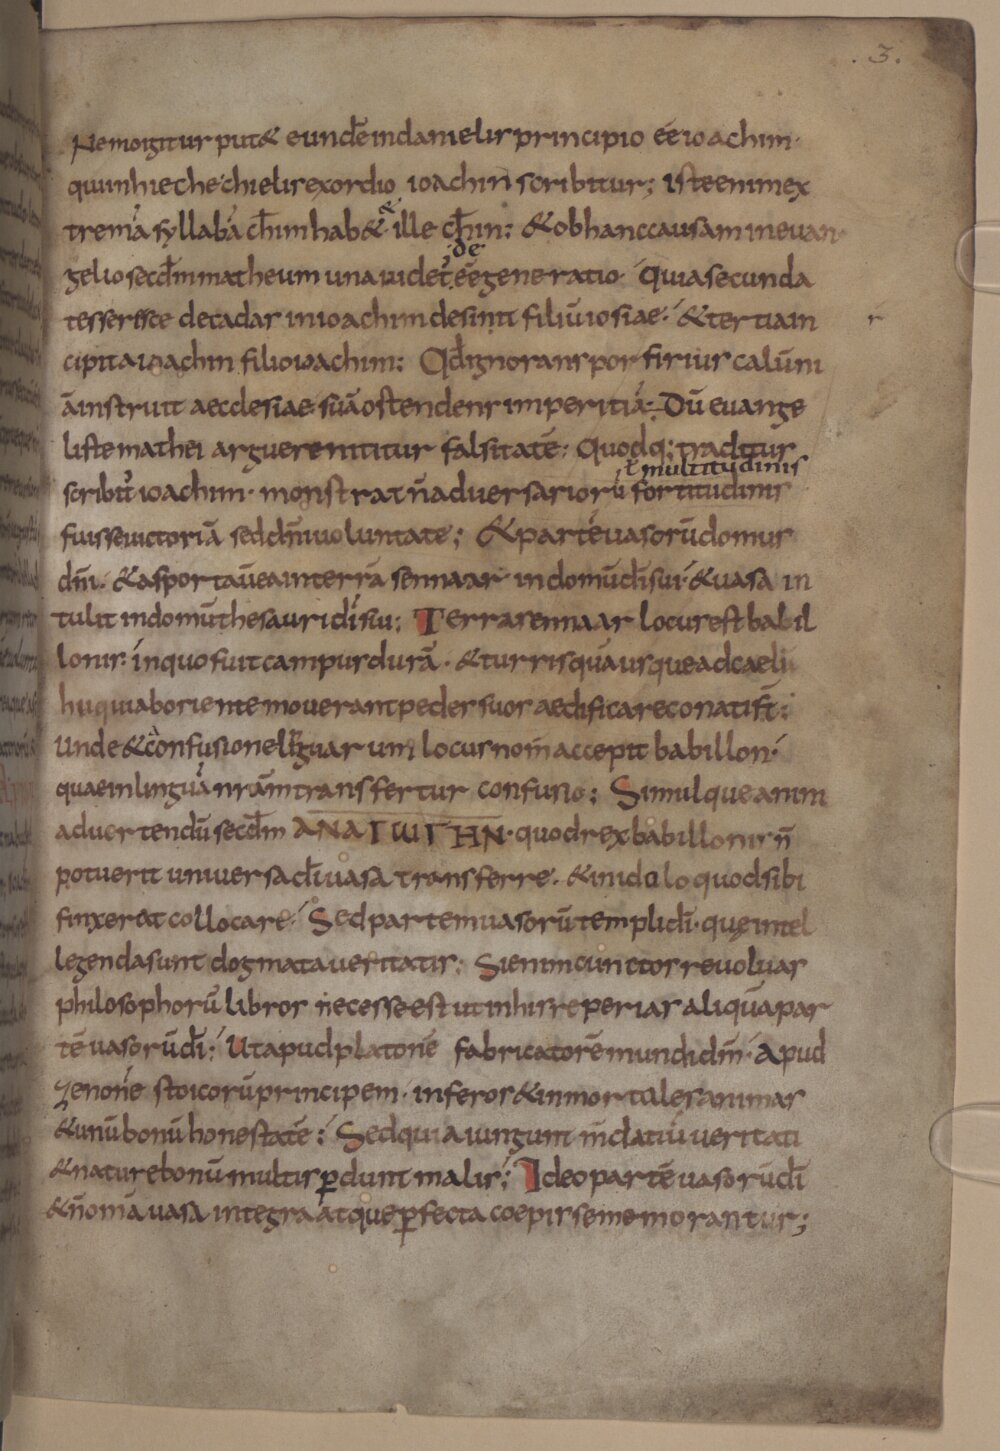 .3.
Nemo igitur put& eundē indanielis principio eē ioachim·
qui inhiechechielis exordio ioachin scribitur; Iste enim ex
tremā syllabā chim hab& & ille chin; & ob hanc causam in euan
gelio secdm matheum una uidet de eē generatio· Quia secunda
tesseresce decadas in ioachim desinit filiū iosiae· & tertia in
cipit a ioachin filio ioachim: Qd ignorans porfirius calūm
r
ā instruit aecclesiae suā ostendens imperitiā· Dū euange
liste mathei arguere nititur falsitatē· Quodq; traditur
ł multitudinis
scribit ioachim· monstrat ñ aduersariorū fortitudinis
fuisse uictoriā sed dñi uoluntate; & partē uasorū domus
dñi· & asportauit ea in terrā sennaar in domū di sui· & uasa in
tulit in domū thesauri di sui; Terra sennaar locus est babil
lonis· in quo fuit campus durā· & turris quā usque ad caeli
hi qui ab oriente mouerant pedes suos aedificare conati st̄:
Unde & a confusione linguarum locus nom̄ accepit babillon·
quae in linguā nrām transfertur confusio: Simulque anim
aduertendū secdm ΑΝΑΓωΓΗΝ· quod rex babillonis ñ
potuerit uniuersa di uasa transferre· & in idolo quod sibi
finxerat collocare· Sed partem uasorū templi di· quę intel
legenda sunt dogmata ueritatis; Si enim cunctos reuoluas
philosophorū libros necesse est ut in his reperias aliquā par
tē uasorū di; Ut apud platonē fabricatorē mundi dm̄· Apud
zenonē stoicorū principem· inferos & inmortales animas
& unū bonū honestatē: Sed quia iungunt mendatiū ueritati
& nature bonū multis perdunt malis; Ideo partē uasorū di
& ñ omā uasa integra atque perfecta coepisse memorantur;